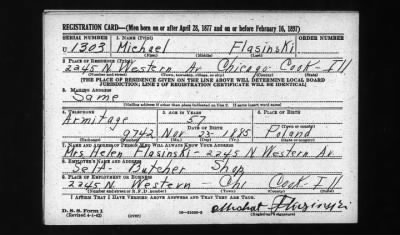 REGISTRATION CARD—(Men born on or after April 28, 1877 and on or before February 16, 1897)
SERIAL NUMBER 1. NAME (Print) ORDER NUMBER
U 1303 Michael Flasinski
(First) (Middle) (Last)
2. PLACE OF RESIDENCE (Print)
2245 N Western Av Chicago Cook-Ill
(Number and street) (Town, township, village, or city) (County) (State)
[THE PLACE OF RESIDENCE GIVEN ON THE LINE ABOVE WILL DETERMINE LOCAL BOARD
JURISDICTION; LINE 2 OF REGISTRATION CERTIFICATE WILL BE IDENTICAL]
3. MAILING ADDRESS
Same
[Mailing address if other than place indicated on line 2. If same insert word same]
4. TELEPHONE 5. AGE IN YEARS 6. PLACE OF BIRTH
Armitage 57
DATE OF BIRTH
0742 Nov 1885 Poland
(Exchange) (Number) (Mo.) (Day) (Yr.) (State or country)
7. NAME AND ADDRESS OF PERSON WHO WILL ALWAYS KNOW YOUR ADDRESS
Mrs Helen Flasinski-2245 N Western Av.
8. EMPLOYER'S NAME AND ADDRESS
Self- Butcher Shop
9. PLACE OF EMPLOYMENT OR BUSINESS
2245 N Western - Chi Cook-Ill
(Number and street or R. F. D. number) (Town) (County) (State)
I AFFIRM THAT I HAVE VERIFIED ABOVE ANSWERS AND THAT THEY ARE TRUE.
D. S. S. Form 1
(Revised 4-1-42) (Registrant's signature)